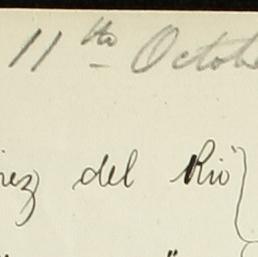 11th Octob
rez del Rio"